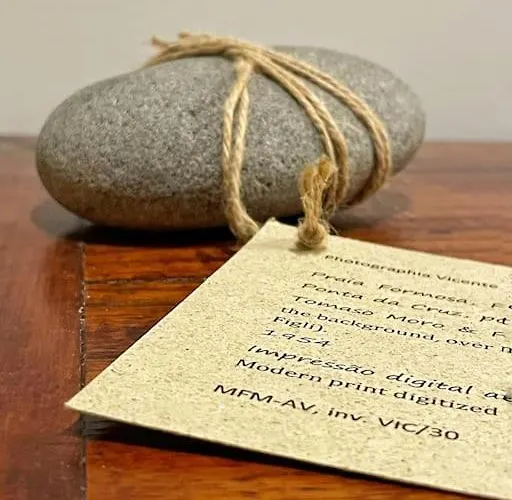 Photographia Vicente
Praia Formosa. F
Ponta da Cruz. pd
Tomaso Moro & F
the background, over m
Figli).
1954
Impressão digital
Modern print digitized
MFM-AV, inv. VIC/30